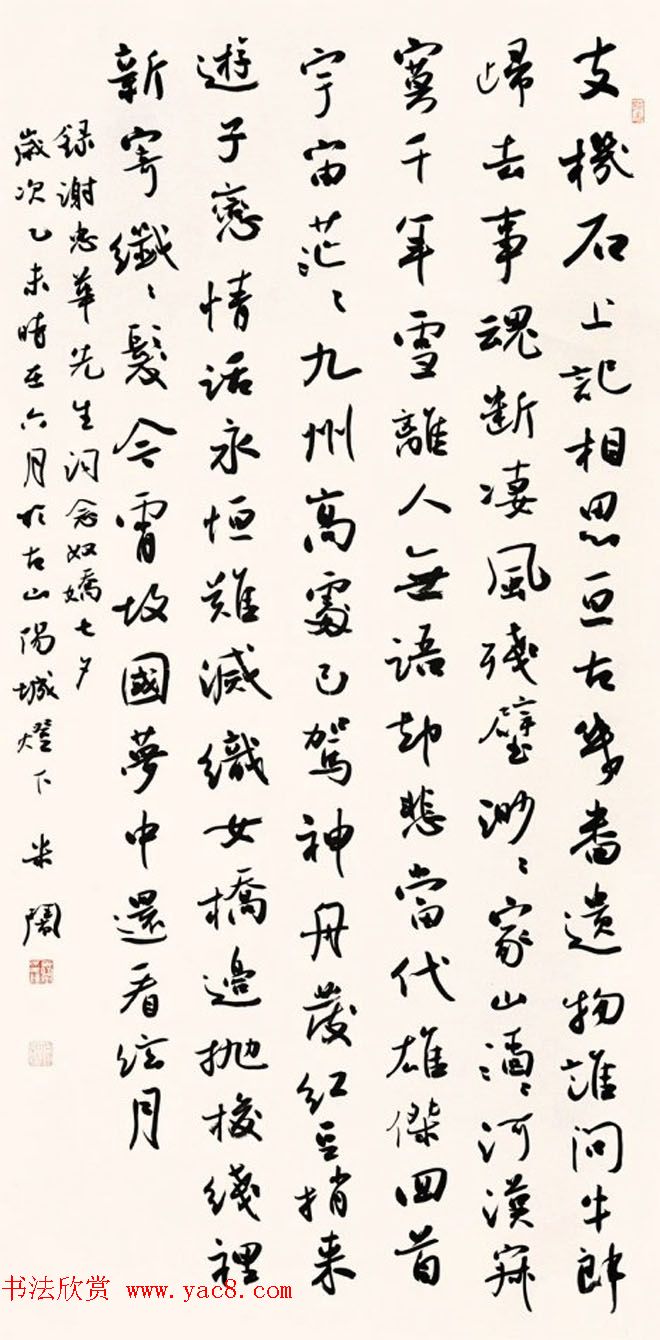 支機石上記相思亘古幾番遺物誰問牛郎
歸去事魂斷淒風殘壁渺〻家山〻河漢寂
寞千年雪離人無語却悲當代雄傑回首
宇宙茫〻九州高處已駕神舟發紅豆捎来
遊子戀情話永恒難滅織女橋邊拋梭綫裡
新寄纖〻髮今宵故國夢中還看絃月
録謝忠華先生詞念奴嬌七夕
歲次乙未時在六月於古山陽城燈下 米閙
书法欣赏 www.yac8.com